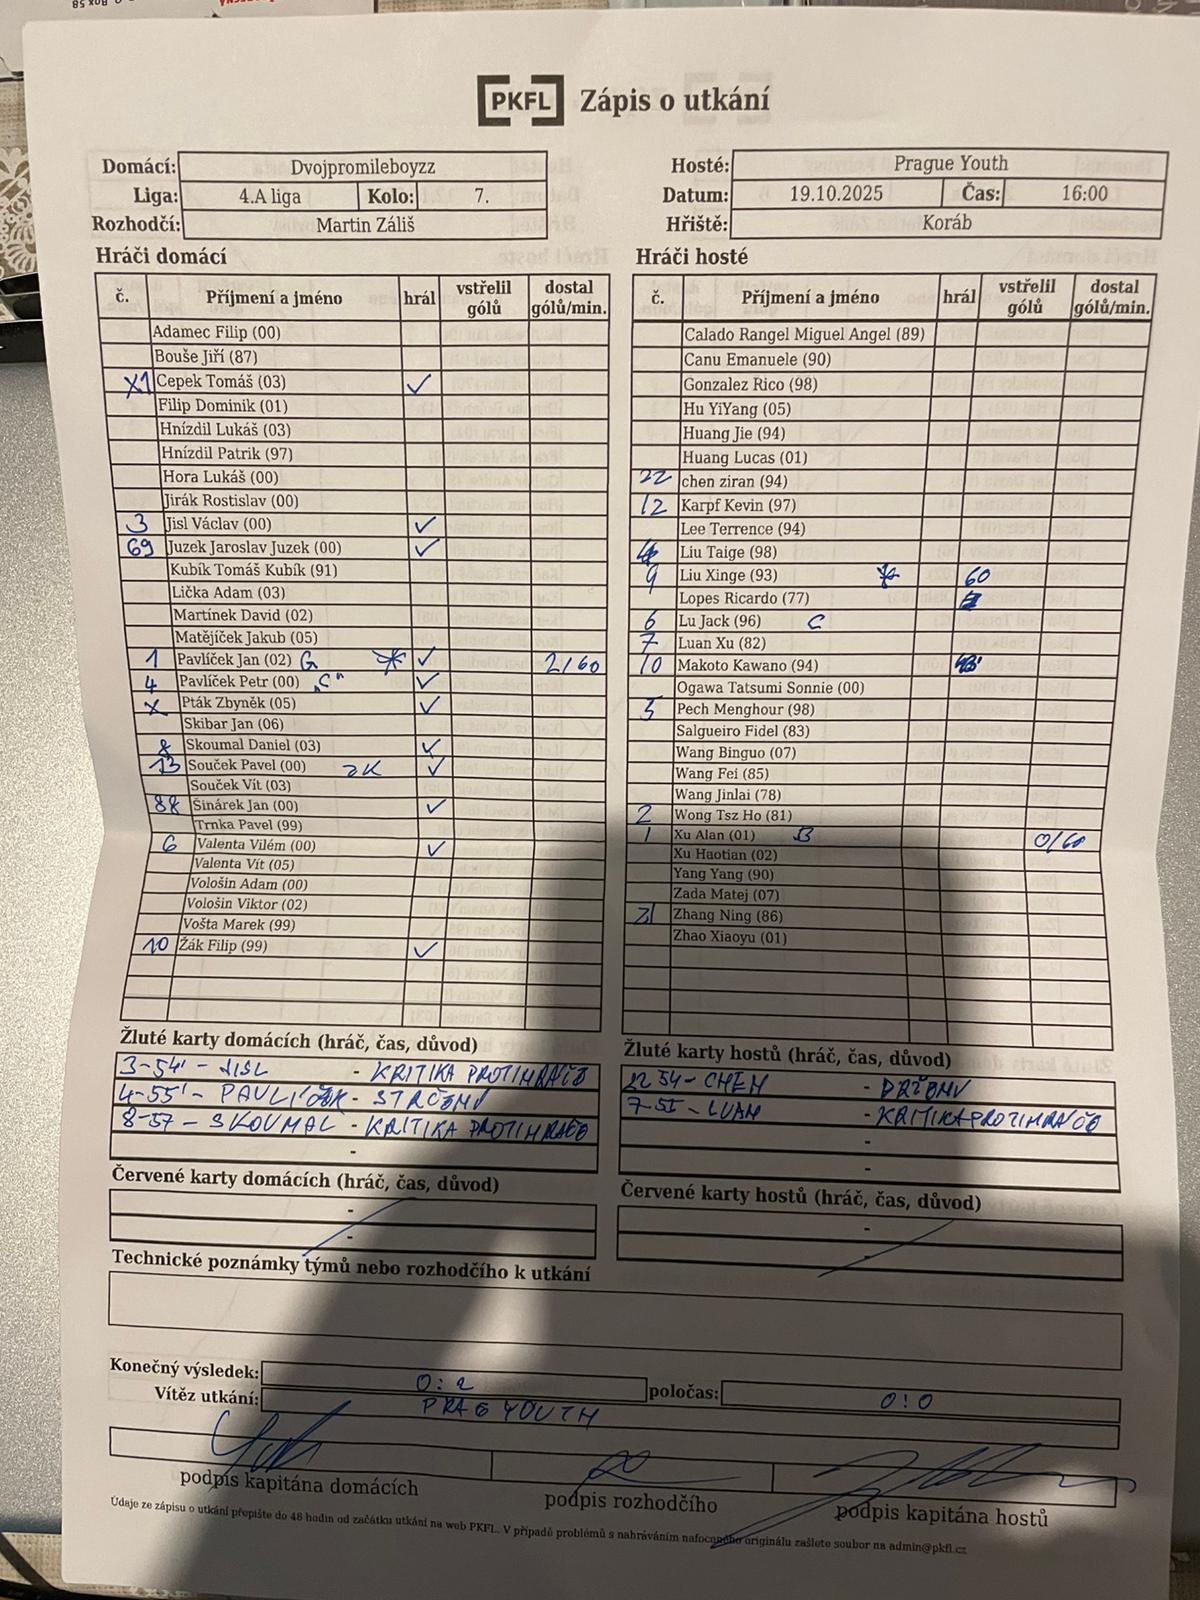 PKFL Zápis o utkání
Domácí: Dvojpromileboyzz
Liga: 4.A liga Kolo: 7.
Rozhodčí: Martin Záliš
Hosté: Prague Youth
Datum: 19.10.2025 Čas: 16:00
Hřiště: Koráb
Hráči domácí
č. Příjmení a jméno hrál vstřelil gólů dostal gólů/min.
Adamec Filip (00)
Bouše Jiří (87)
X1 Cepek Tomáš (03) ✓
Filip Dominik (01)
Hnízdil Lukáš (03)
Hnízdil Patrik (97)
Hora Lukáš (00)
Jirák Rostislav (00)
3 Jisl Václav (00) ✓
69 Juzek Jaroslav Juzek (00) ✓
Kubík Tomáš Kubík (91)
Lička Adam (03)
Martínek David (02)
Matějíček Jakub (05)
1 Pavlíček Jan (02) G ✓ 2/60
4 Pavlíček Petr (00) „C" ✓
X Pták Zbyněk (05) ✓
Skibar Jan (06)
8 Skoumal Daniel (03) ✓
13 Souček Pavel (00) ZK ✓
Souček Vít (03)
88 Šinárek Jan (00) ✓
Trnka Pavel (99)
6 Valenta Vilém (00) ✓
Valenta Vít (05)
Vološin Adam (00)
Vološin Viktor (02)
Vošta Marek (99)
10 Žák Filip (99) ✓
Hráči hosté
č. Příjmení a jméno hrál vstřelil gólů dostal gólů/min.
Calado Rangel Miguel Angel (89)
Canu Emanuele (90)
Gonzalez Rico (98)
Hu YiYang (05)
Huang Jie (94)
Huang Lucas (01)
22 chen ziran (94)
12 Karpf Kevin (97)
Lee Terrence (94)
Liu Taige (98)
9 Liu Xinge (93) 60
Lopes Ricardo (77)
6 Lu Jack (96) C
7 Luan Xu (82)
10 Makoto Kawano (94)
Ogawa Tatsumi Sonnie (00)
5 Pech Menghour (98)
Salgueiro Fidel (83)
Wang Binguo (07)
Wang Fei (85)
Wang Jinlai (78)
2 Wong Tsz Ho (81)
1 Xu Alan (01) 0/60
Xu Haotian (02)
Yang Yang (90)
Zada Matej (07)
Zhang Ning (86)
Zhao Xiaoyu (01)
Žluté karty domácích (hráč, čas, důvod)
3-54' - JISL - KRITIKA PROTIHRÁČE
4-55' - PAVLÍČEK - STRČENÍ
8-57 - SKOUMAL - KRITIKA PROTIHRÁČE
-
Žluté karty hostů (hráč, čas, důvod)
22 54 - CHEN - DRŽENÍ
- LUAN - KRITIKA PROTIHRÁČE
-
-
Červené karty domácích (hráč, čas, důvod)
-
-
Červené karty hostů (hráč, čas, důvod)
-
-
Technické poznámky týmů nebo rozhodčího k utkání
Konečný výsledek: 0:2 poločas: 0:0
Vítěz utkání: PRAG YOUTH
podpis kapitána domácích podpis rozhodčího podpis kapitána hostů
Údaje ze zápisu o utkání přepište do 48 hodin od začátku utkání na web PKFL. V případě problémů s nahráváním nafoceného originálu zašlete soubor na admin@pkfl.cz